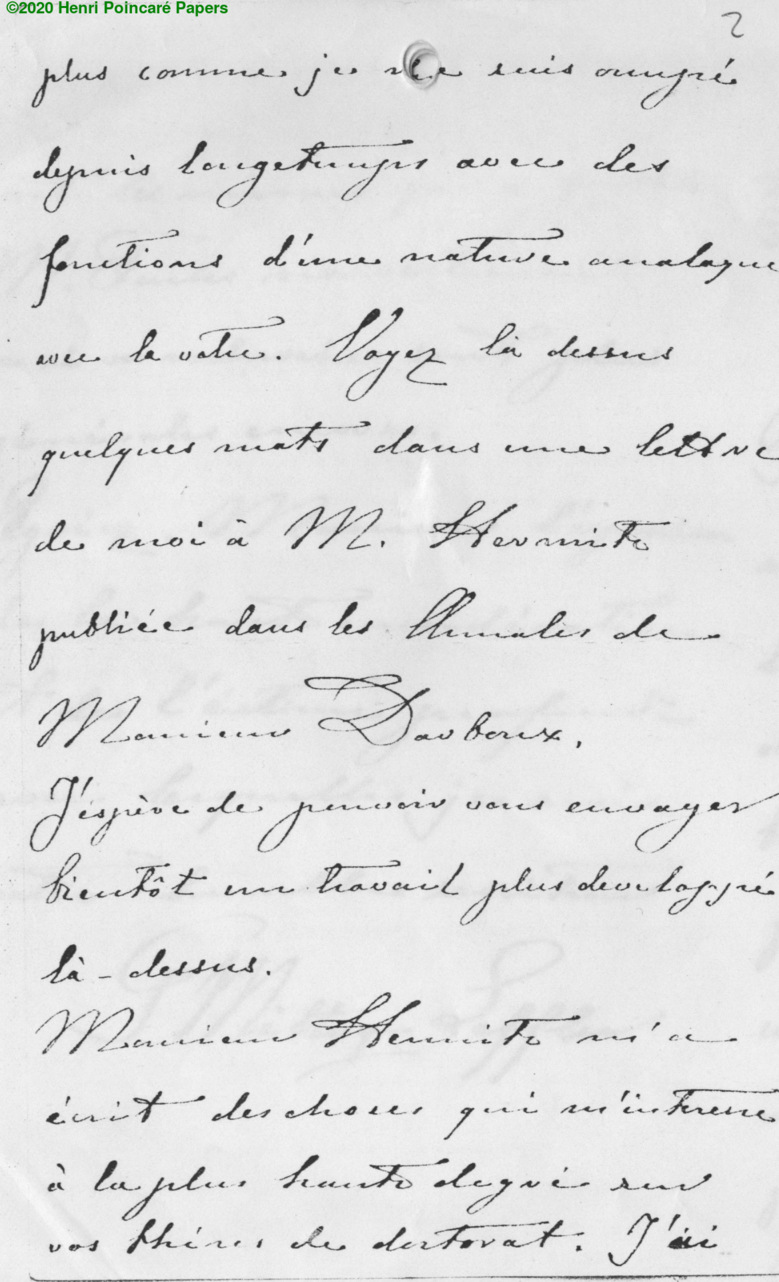 ©2020 Henri Poincaré Papers
2
plus comme je me suis occupé
depuis longetemps avec des
fonctions d'une nature analogue
avec la votre. Voyez là dessus
quelques mots dans une lettre
de moi à M. Hermite
publiée dans les Annales de
Monsieur Darboux.
J'éspère de pouvoir vous envoyer
bientôt un travail plus developpé
là-dessus.
Monsieur Hermite m'a
écrit des choses qui m'interesse
à la plus haute degré sur
vos thèses de doctorat. J'ai